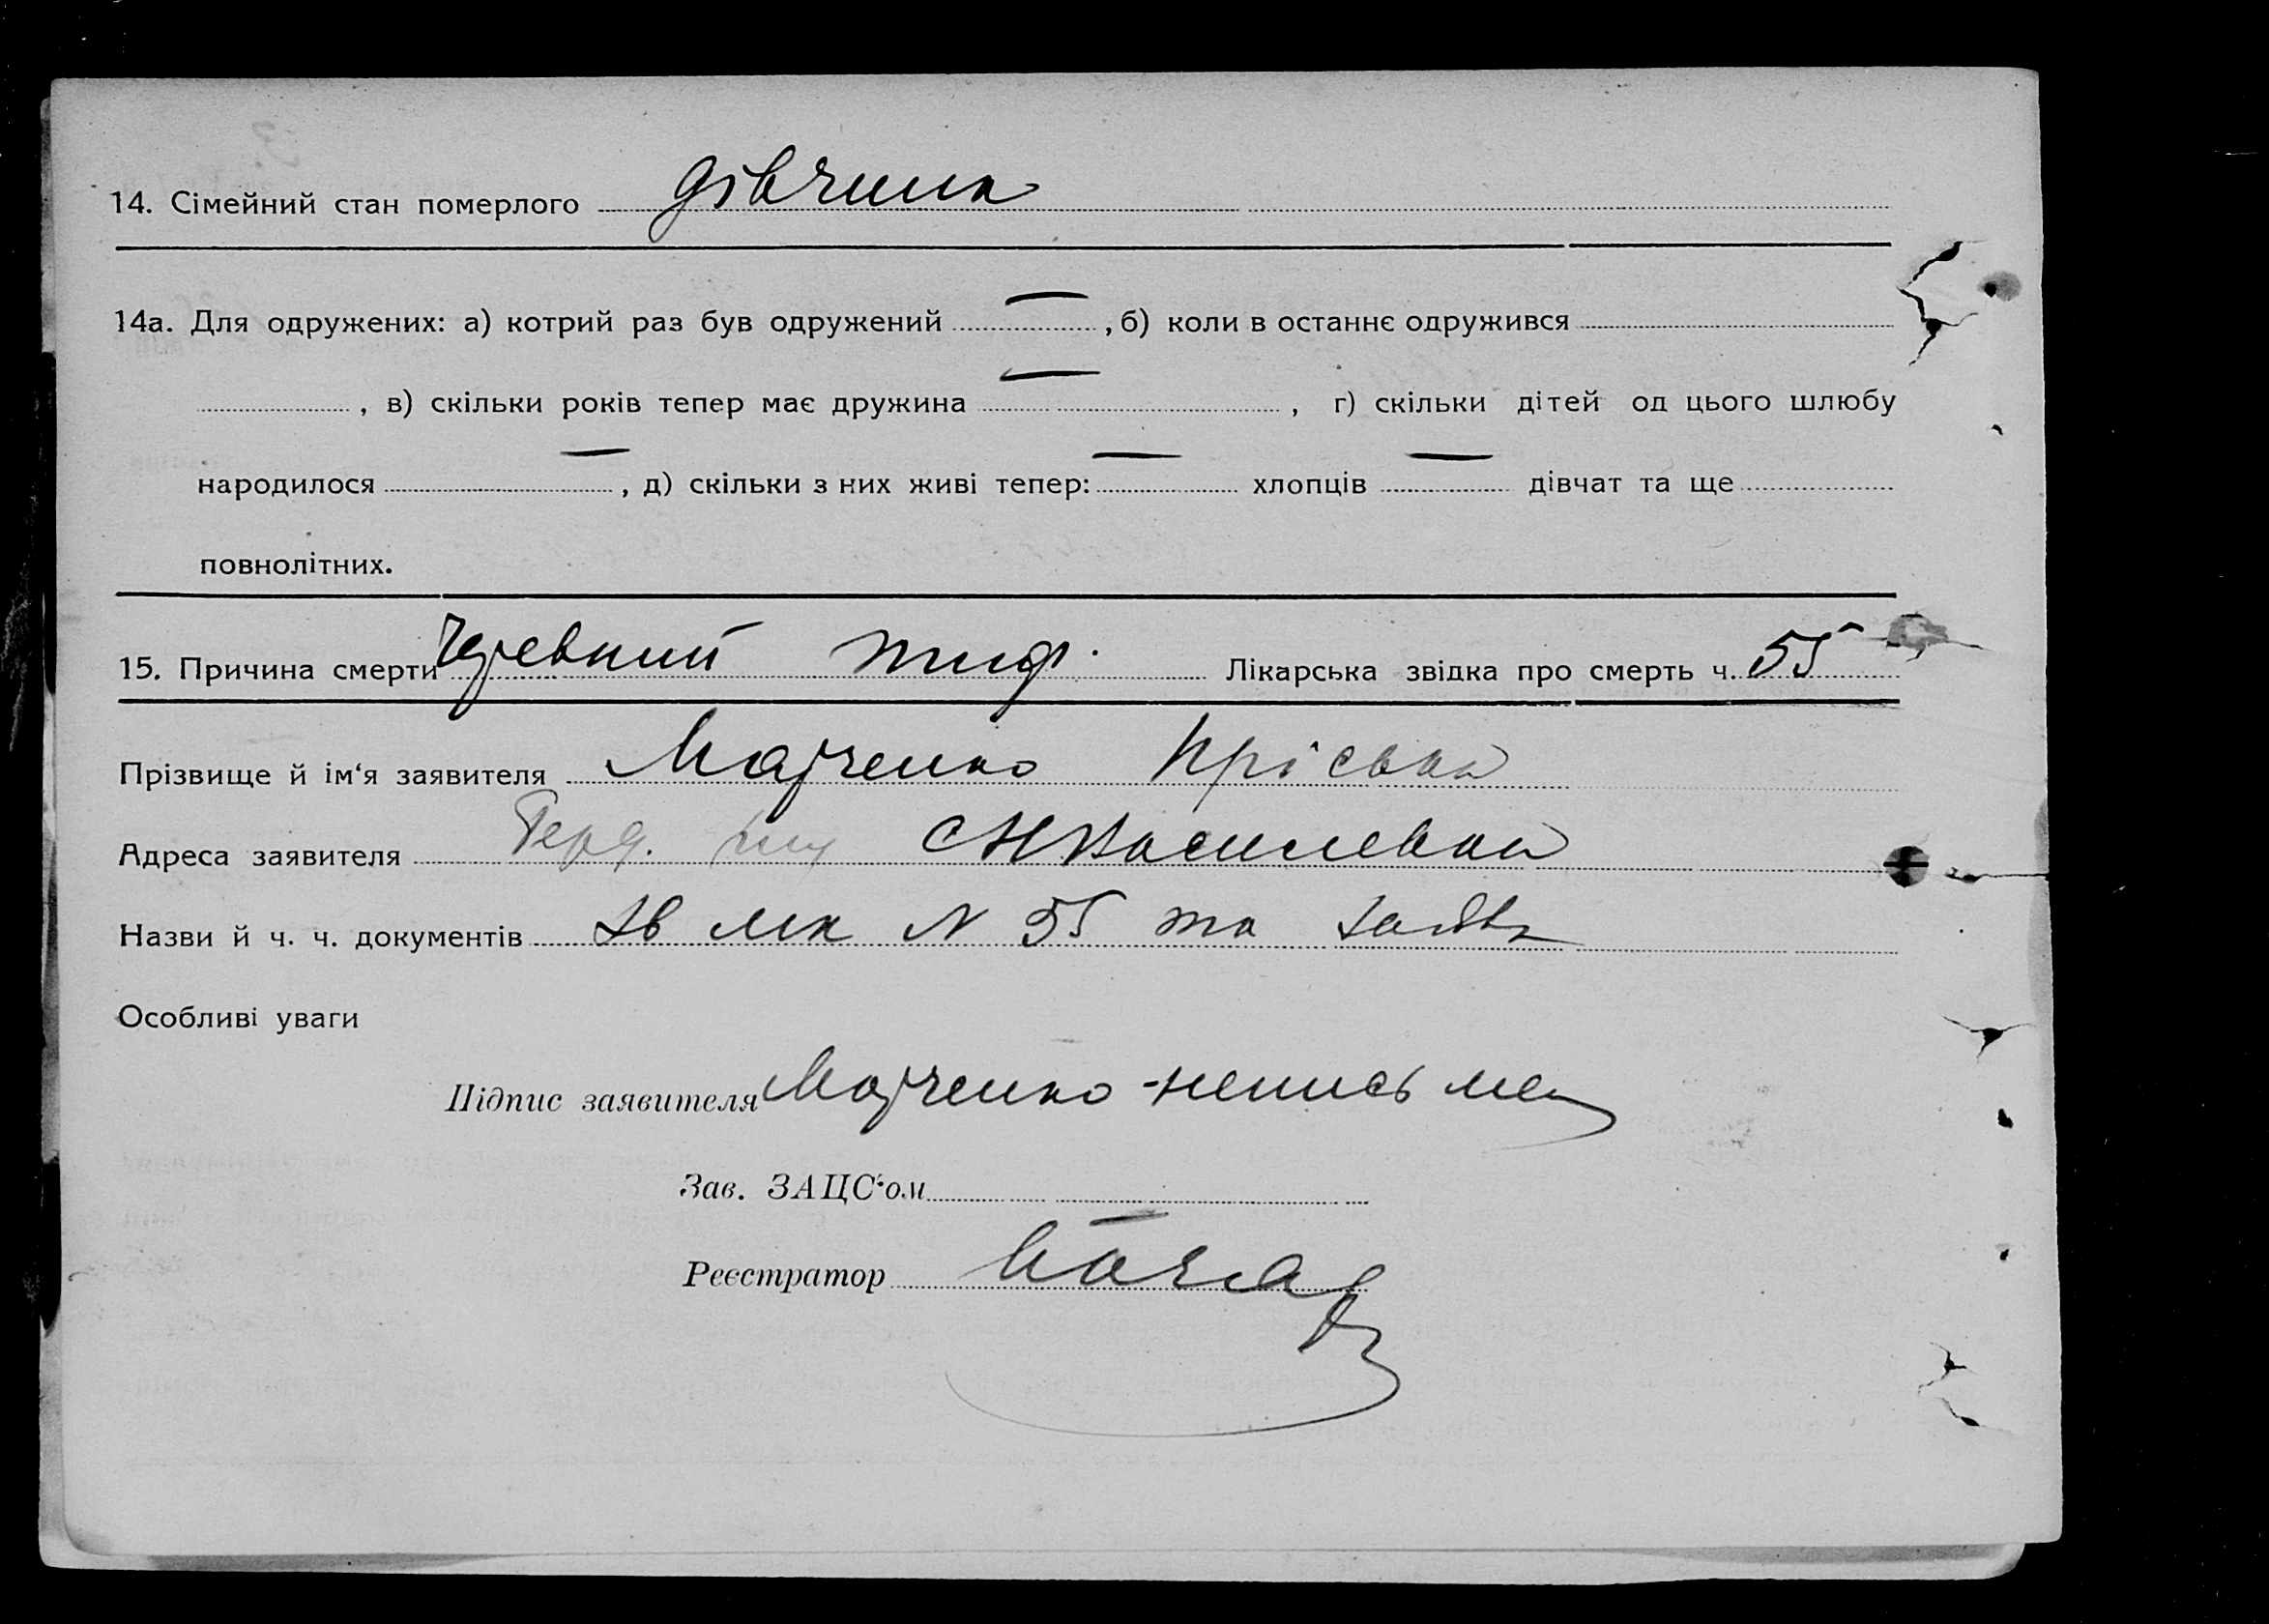 14. Сімейний стан померлого дівчина
14а. Для одружених: а) котрий раз був одружений — , б) коли в останнє одружився
, в) скільки років тепер має дружина — , г) скільки дітей од цього шлюбу
народилося — , д) скільки з них живі тепер: — хлопців — дівчат та ще
повнолітних.
15. Причина смерти Черевний тиф. Лікарська звідка про смерть ч. 55
Прізвище й ім'я заявителя Марченко Пріська
Адреса заявителя Герд. СН Василевка
Назви й ч. ч. документів Зв мк N 55 та заява
Особливі уваги
Підпис заявителя Марченко - неписьмен
Зав. ЗАЦС'ом
Реєстратор